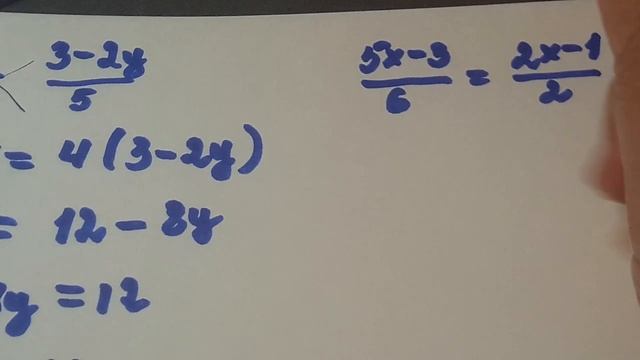 3-2y
5
= 4(3-2y)
= 12-8y
y = 12
5x-3 / 6 = 2x-1 / 2